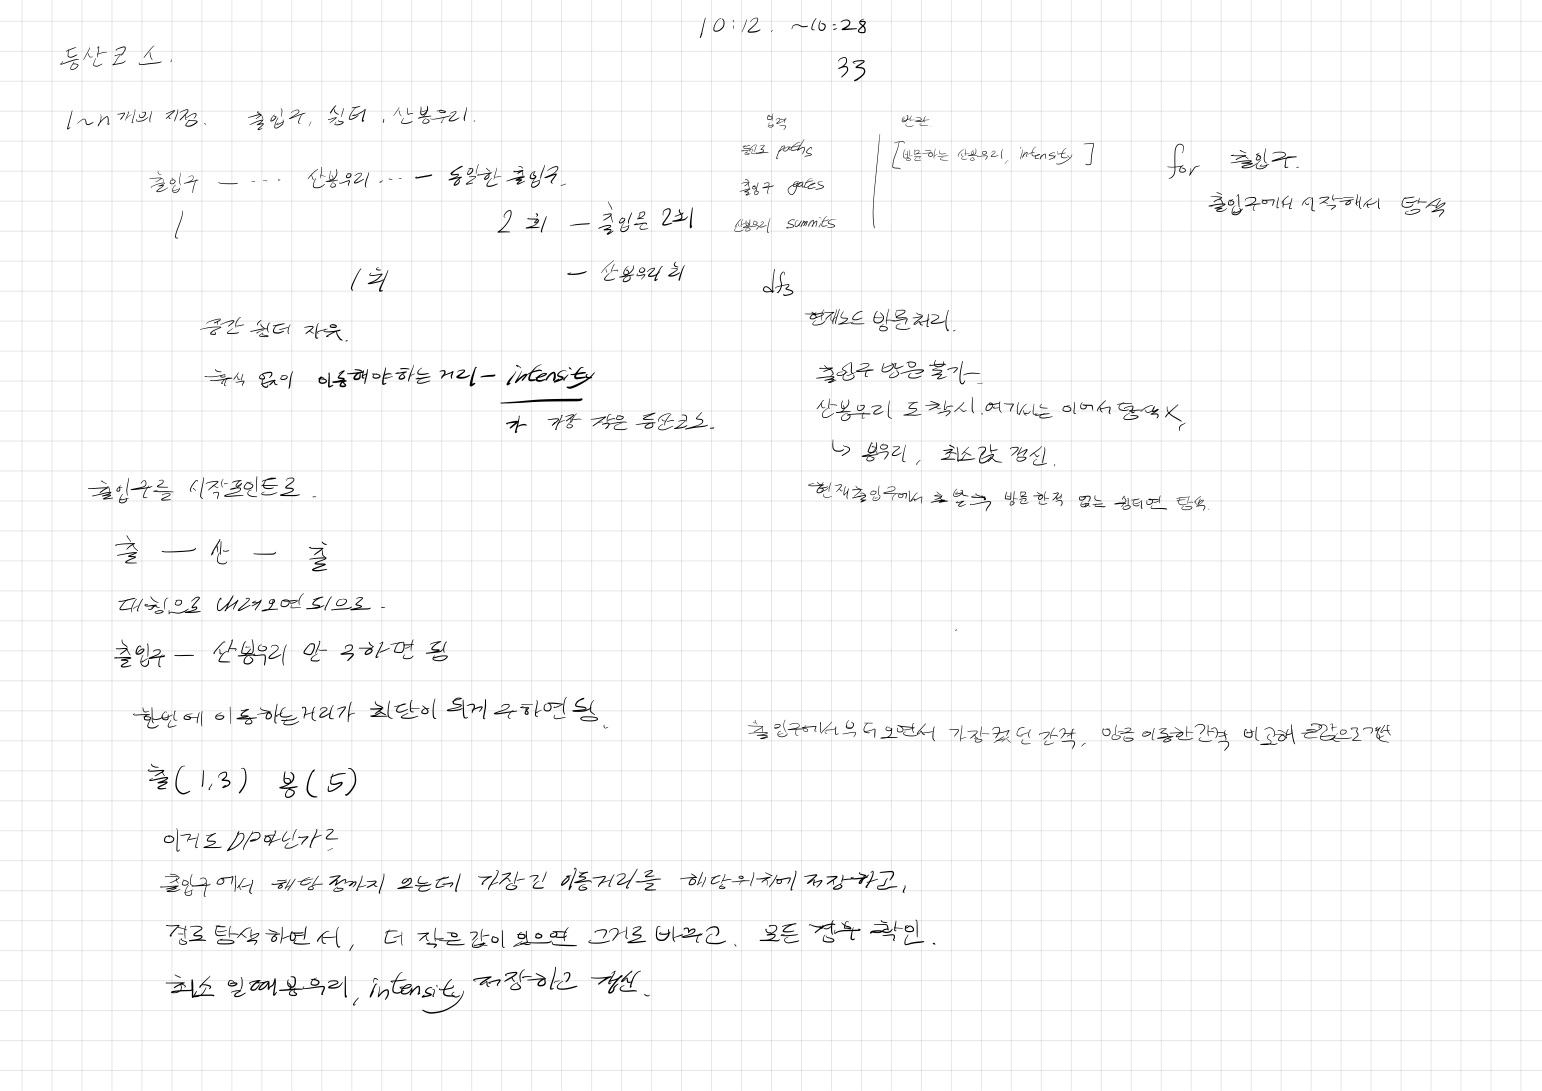 10:12. ~10:28
33
등산코스.
1~n개의 지점. 출입구, 쉼터, 산봉우리.
출입구 — ··· 산봉우리 ··· — 동일한 출입구.
1
2회 — 출입문 2회
1회
— 산봉우리 회
중간 쉼터 자유.
휴식 없이 이동해야하는 거리 — intensity
가 가장 작은 등산코스.
출입구를 시작포인트로.
출 — 산 — 출
대칭으로 내려오면 되므로.
출입구 — 산봉우리 만 구하면 됨
한번에 이동하는거리가 최단이 되게 구하면 됨.
출(1,3) 봉(5)
이거도 DP아닌가?
출입구에서 해당 점까지 오는데 가장 긴 이동거리를 해당위치에 저장하고,
경로 탐색하면서, 더 작은 값이 있으면 그거로 바꾸고. 모든 경우 확인.
최소 일때 봉우리, intensity 저장하고 갱신.
입력
등산로 paths
출입구 gates
산봉우리 summits
반환
[방문하는 산봉우리, intensity]
for 출입구.
출입구에서 시작해서 탐색
dfs
현재노드 방문처리.
출입구 방문 불가—
산봉우리 도착시. 여기서는 이어서 탐색X,
↳ 봉우리, 최소값 갱신.
현재출입구에서 출발 후 방문한적 없는 쉼터면 탐색.
출입구에서부터 오면서 가장 컸던 간격, 방금 이동한 간격 비교해 큰값으로 갱신